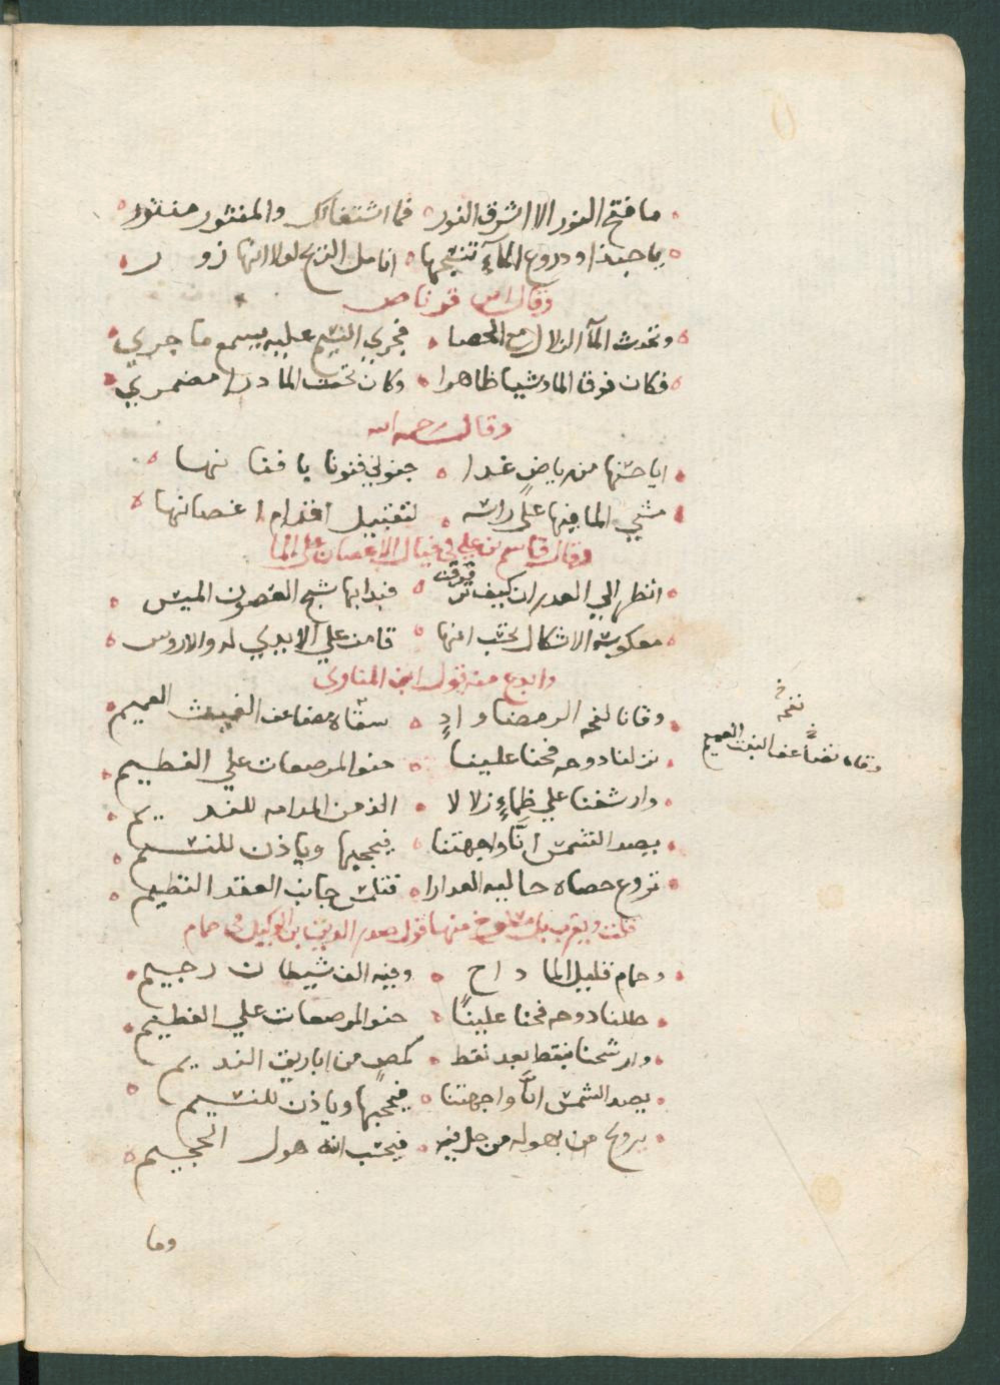 ما فتح النور الا اشرق النور فما اشتغالك والمنثور منثور
يا حبذا ودروع المآء تنسجها انامل الريح لولا انها زور
وقال ابن قرناص
وتحدث المآ الزلال مع الحصا فجري النسيم عليه يسمع ما جري
فكان فوق الما وشيا ظاهرا وكان تحت الما درا مضمري
وقال رحمه الله
ايا حسنها من رياض غدا جنوني فنونا بافنانها
مشي الما فيها على راسه لتقبيل اقدام اغصانها
وقال قاسم بن علي في خيال الاغصان على الما
انظر الي الغدران كيف ترقرقت فبدا بها شبح الغصون الميس
معكوسة الاشكال تحسب انها قامت علي الايدي له والاروس
وابدع منه قول ابن المناوى
وقانا لفحه الرمضا وادٍ سقاه مضاعف الغيث العميم
نزلنا دوحه فحنا علينا حنو المرضعات علي الفطيم
وارشفنا علي ظماءٍ زلالا الذ من المدامه للنديم
يصد الشمس انّا واجهتنا فيحجبها وياذن للنسيم
تروع حصاه حاليه العدارا فتلمس جانب العقد النظيم
نفحه
وقاه مضاعف النبت العميم
قلت ويقرب منها قول صدر الدين بن الوكيل في حمام
وحمام قليل الما داح وفيه الف شيطان رجيم
حللنا دوحه فحنا علينا حنو المرضعات علي الفطيم
وارشحنا بنقط بعد نقط كمصٍ من اباريق النديم
يصد الشمس انّا واجهتنا فيحجبها وياذن للنسيم
يروح من بهوله من حل فيه فيحسب انه هول الجحيم
وما